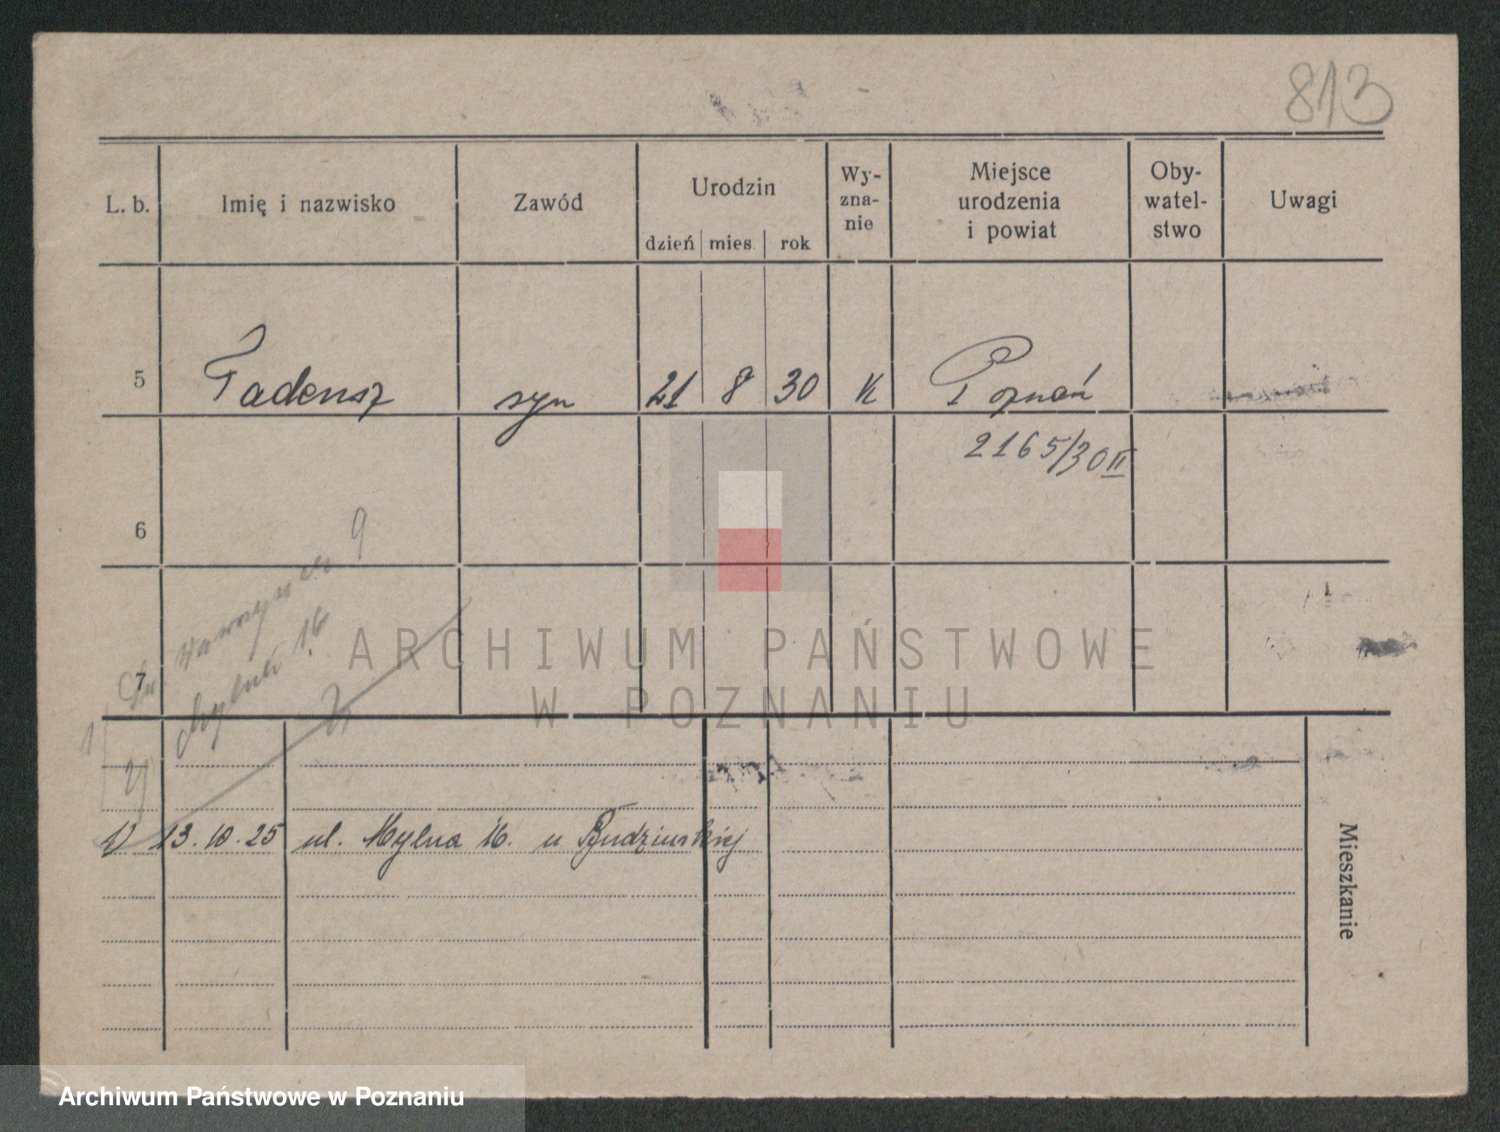 813
L. b. Imię i nazwisko Zawód Urodzin dzień mies. rok Wy-zna-nie Miejsce urodzenia i powiat Oby-watel-stwo Uwagi
5 Tadeusz syn 21 8 30 K Poznań
2165/30 II
6
9
16
7
ARCHIWUM PAŃSTWOWE
W POZNANIU
13.10.25 ul. Mylna 16. u Budzińskiej
Mieszkanie
Archiwum Państwowe w Poznaniu